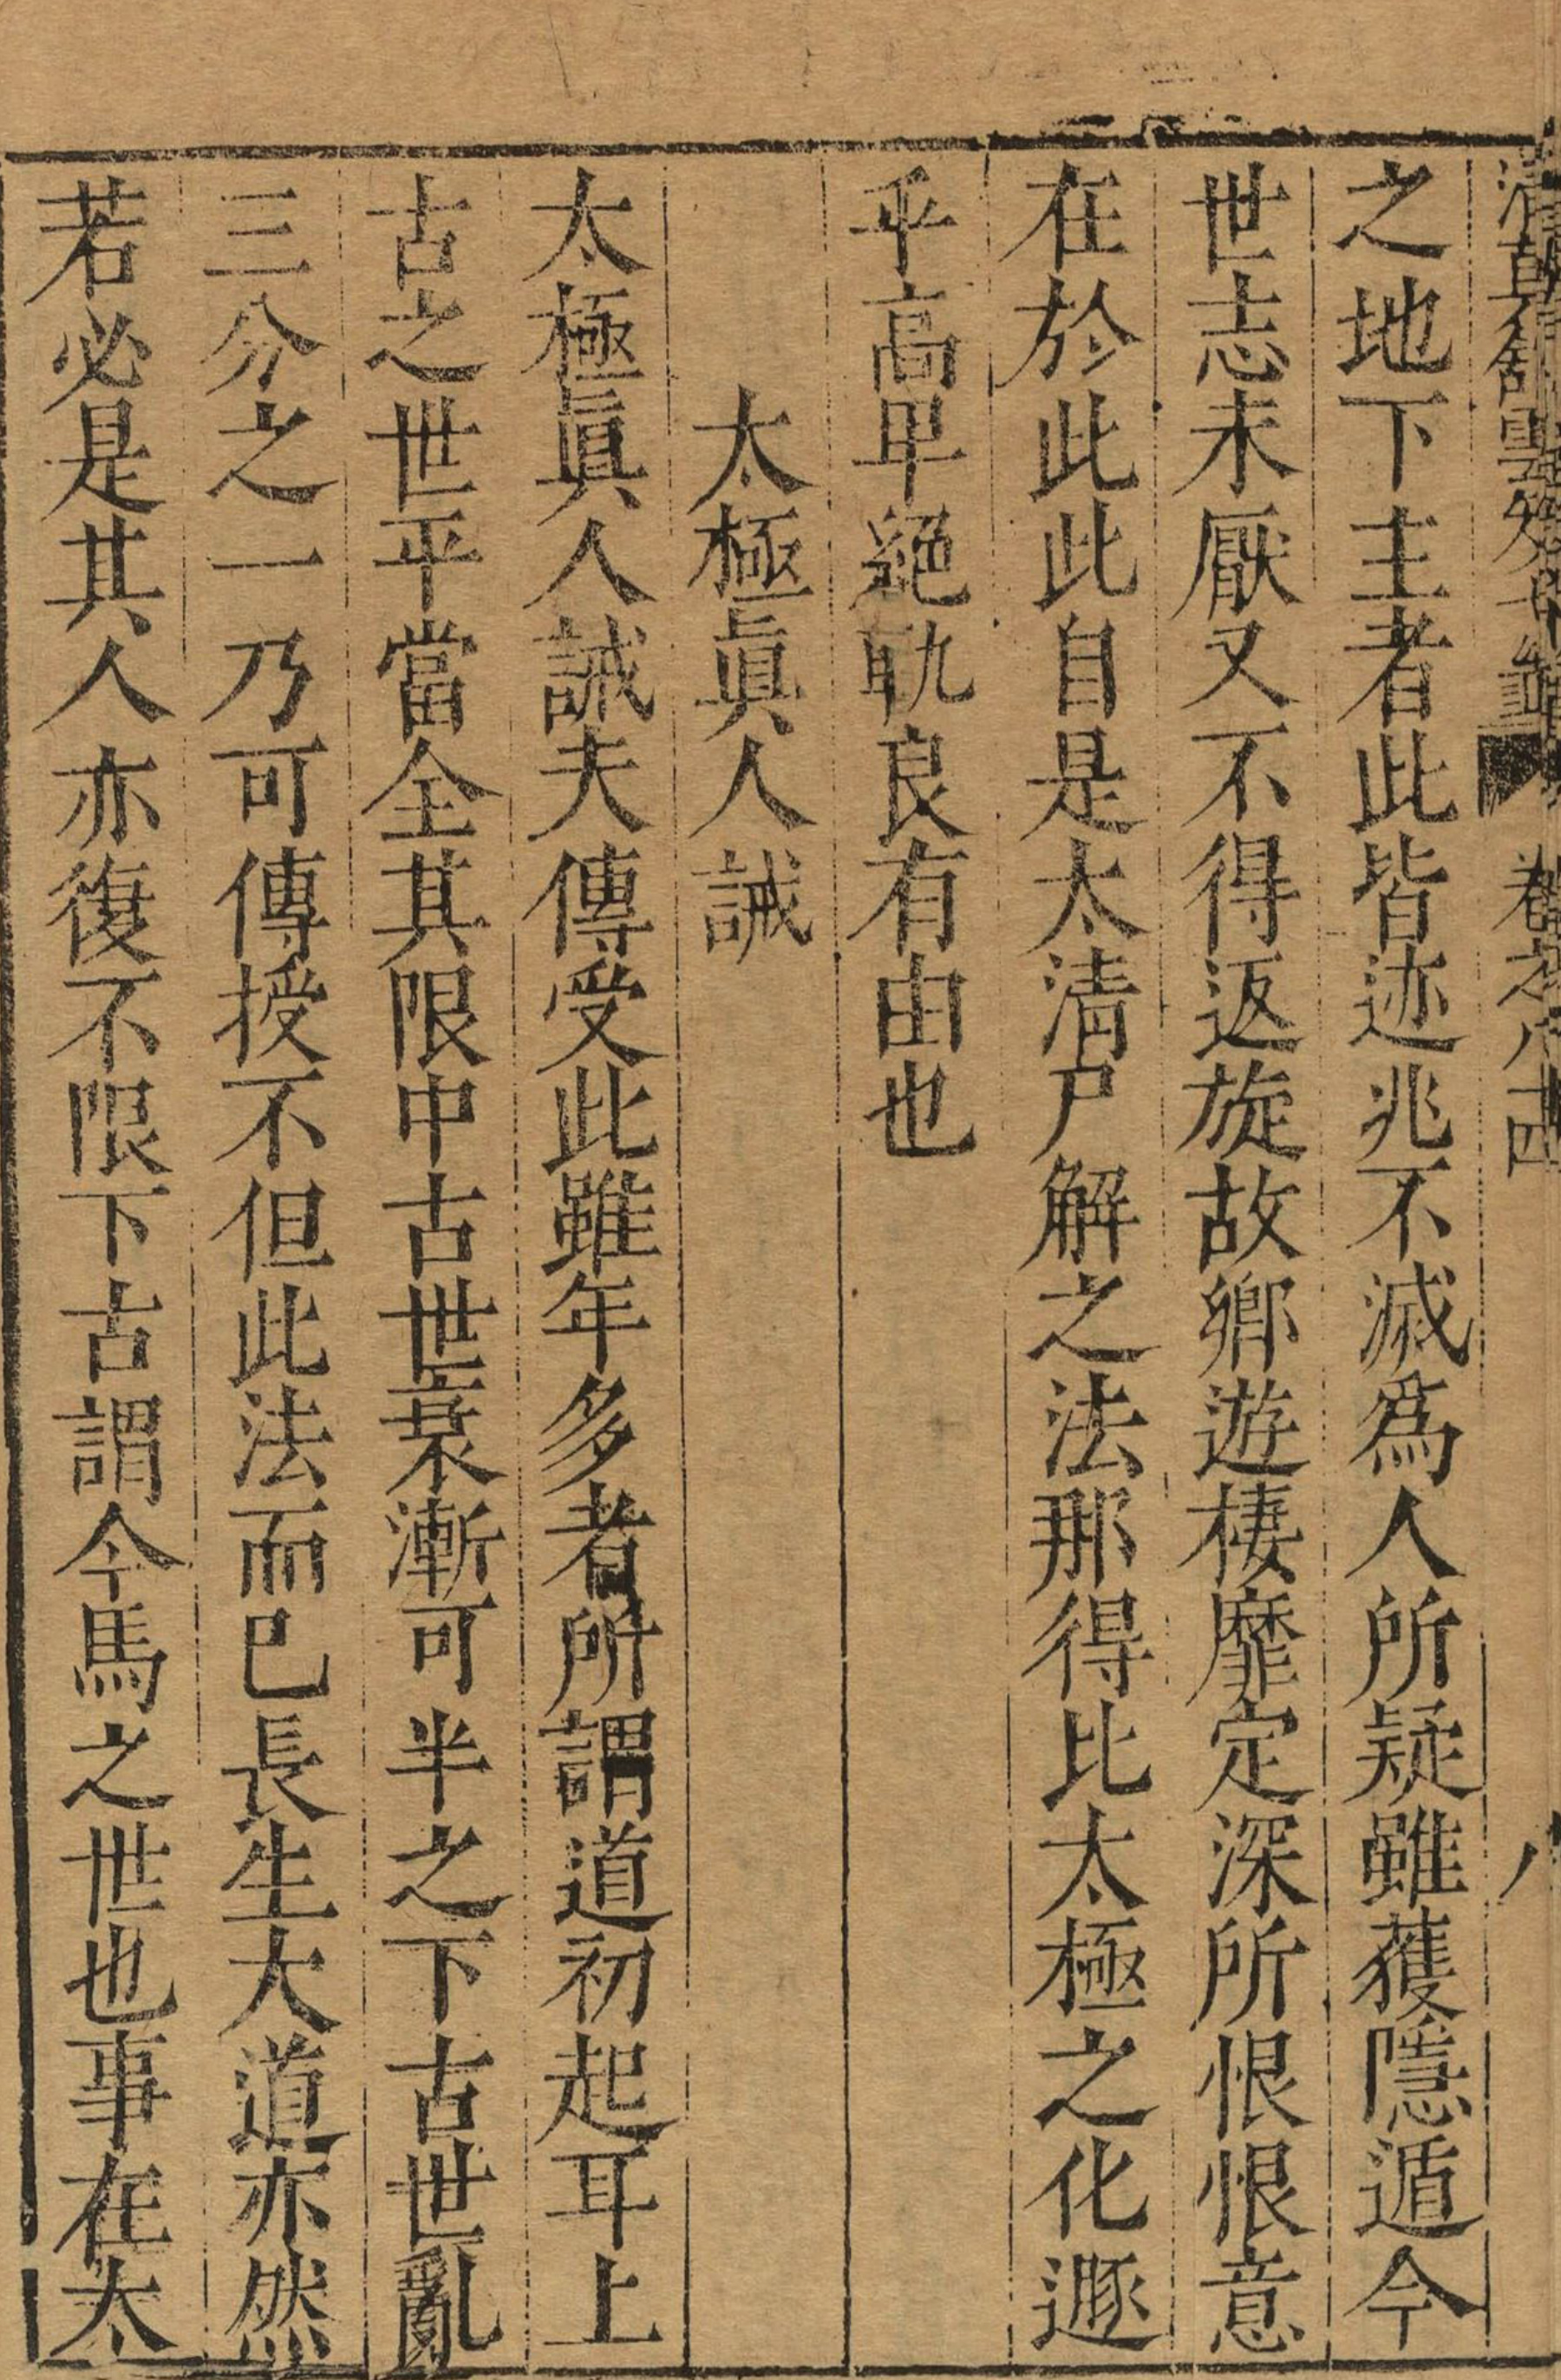 清真館雲笈七籤 卷之八十四 八
之地下主者此皆迹兆不滅爲人所疑雖獲隱遁今
世志未厭又不得返旋故鄉遊棲靡定深所恨恨意
在於此此自是太清尸解之法那得比太極之化遯
乎高卑絕軌良有由也
太極眞人誡
太極眞人誡夫傳受此雖年多者所謂道初起耳上
古之世平當全其限中古世衰漸可半之下古世亂
三分之一乃可傳授不但此法而已長生大道亦然
若必是其人亦復不限下古謂今馬之世也事在太